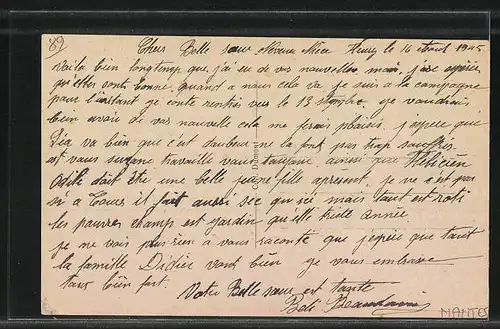 89
Chers Belle sœur Neveux Nièce le 16 Aout 1945
voila bien longtemps que j'ai eu de vos nouvelles mais j'ose espérer
qu'elles sont bonne quand a nous cela va je suis a la campagne
pour l'instant je conte rentrés vers le 13 je voudrais
bien avoir de vos nouvelle cela me ferais plaisir j'espère que
Léa va bien que c'est ne la font pas trop souffrir
est vous suzane travaille vous toujour ainsi que
Odile doit être une belle jeune fille apresent je ne c'est pas
si a Tours il fait aussi sec qui ici mais tout est roti
les pauvres champs est jardin qu'elle triste année
je ne vois plus rien a vous raconté que j'espère que tout
la famille Didier vont bien je vous embrasse
tous bien fort.
Votre Belle sœur est tante
NANTES